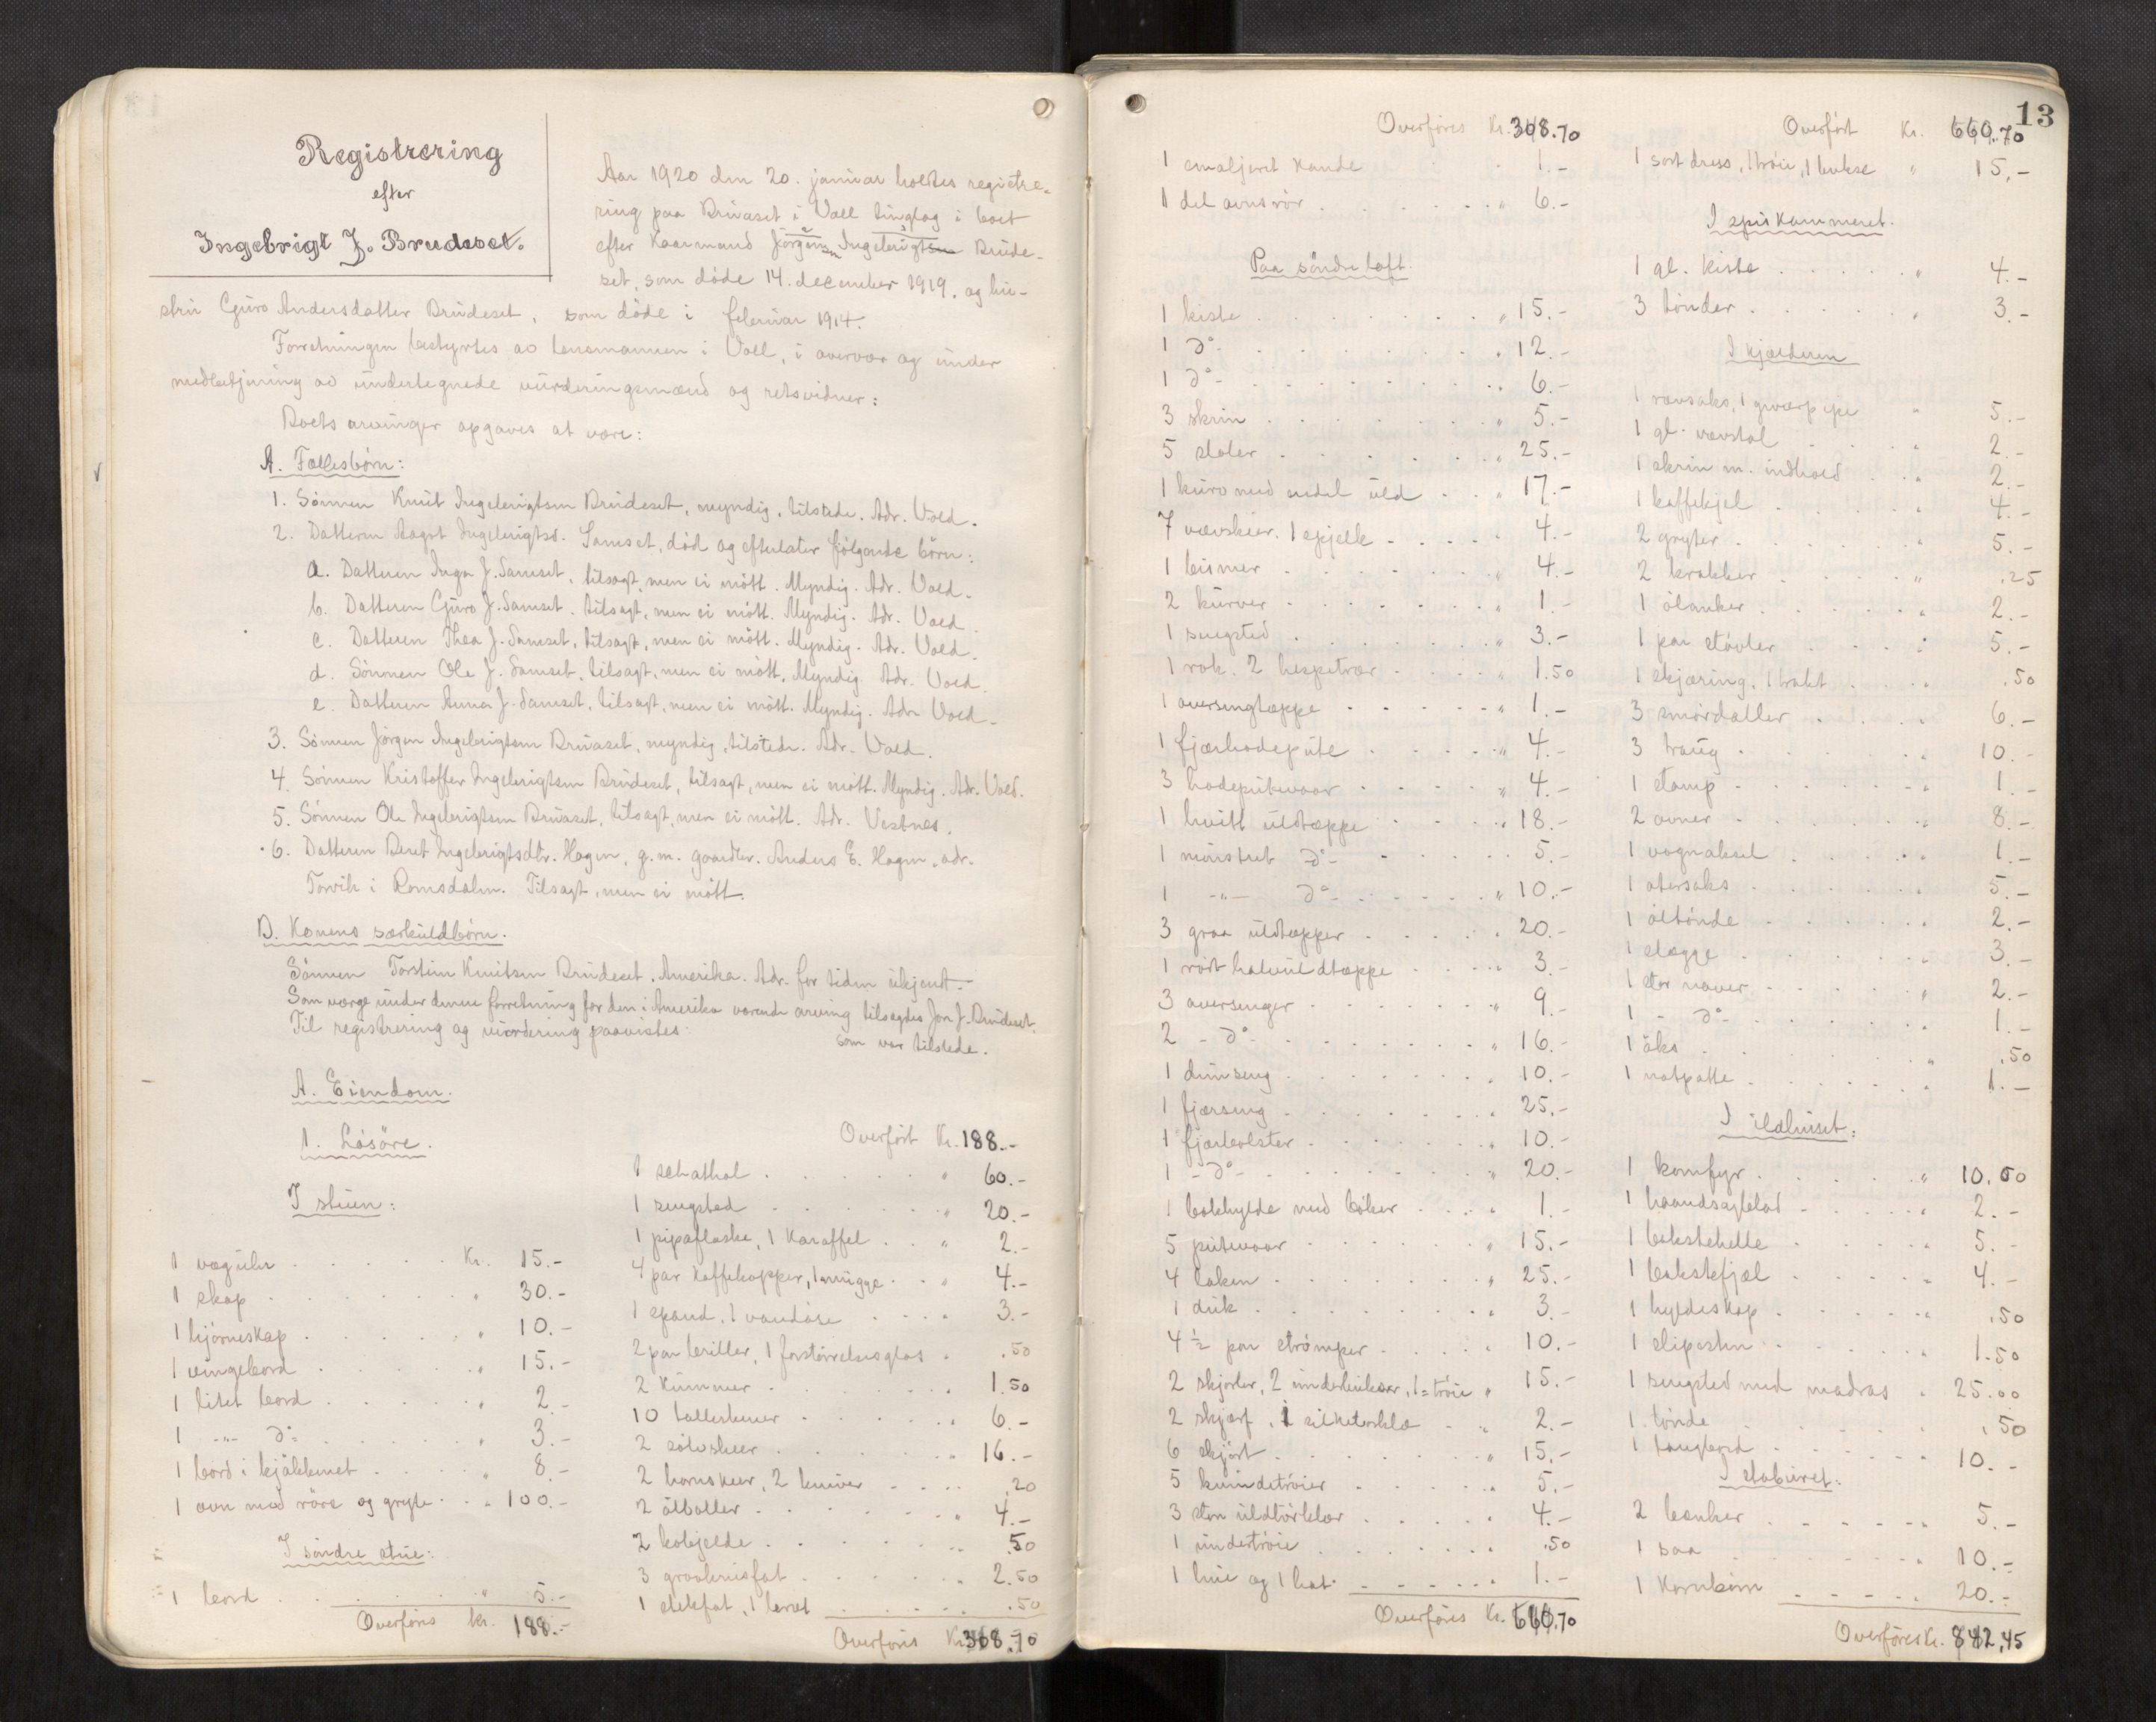 Registrering
efter
Ingebrigt J. Brudeset.
Aar 1920 den 20. januar holdtes registre-
ring paa Brudeset i Voll tinglag i boet
efter Kaarmand Jørgen Ingebrigtsen Brude-
set, som døde 14. december 1919, og hu-
stru Guro Andersdatter Brudeset, som døde i februar 1914.
Forretningen bestyrtes av lensmannen i Voll, i overvær og under
medbetjening av undertegnede vurderingsmænd og retsvidner:
Boets arvinger opgaves at være:
A. Fællesbørn:
1. Sønnen Knut Ingebrigtsen Brudeset, myndig, tilstede. Adr. Vold.
2. Datteren Ingebrigtsd. Samset, død og efterlater følgende børn:
a. Datteren Inga J. Samset, tilsagt, men ei møtt. Myndig. Adr. Vold.
b. Datteren Guro J. Samset, tilsagt, men ei møtt. Myndig. Adr. Vold.
c. Datteren Thea J. Samset, tilsagt, men ei møtt. Myndig. Adr. Vold.
d. Sønnen Ole J. Samset, tilsagt, men ei møtt. Myndig. Adr. Vold.
e. Datteren Anna J. Samset, tilsagt, men ei møtt. Myndig. Adr. Vold.
3. Sønnen Jørgen Ingebrigtsen Bruaset, myndig, tilstede. Adr. Vold.
4. Sønnen Kristoffer Ingebrigtsen Brudeset, tilsagt, men ei møtt. Myndig. Adr. Vold.
5. Sønnen Ole Ingebrigtsen Bruaset, tilsagt, men ei møtt. Adr. Vestnes.
6. Datteren Beret Ingebrigtsdtr. Hagen, g.m. gaardbr. Anders E. Hagen, adr.
Torvik i Romsdalen. Tilsagt, men ei møtt.
B. Konens særkuldbørn.
Sønnen Torstein Knutsen Brudeset, Amerika. Adr. for tiden ukjent.
Som værge under denne forretning for den i Amerika værende arving tilsagdes Jon J. Brudeset,
som var tilstede.
Til registrering og vurdering paavistes:
A. Eiendom.
1. Løsøre.
I stuen:
1 væguhr Kr. 15.-
1 skap " 30.-
1 hjørneskap " 10.-
1 vingebord " 15.-
1 litet bord " 2.-
1 -"- do " 3.-
1 bord i kjøkkenet " 8.-
1 ovn med røre og gryte " 100.-
I søndre stue:
1 bord " 5.-
Overføres kr. 188.-
Overført Kr. 188.-
1 schathol " 60.-
1 sengsted " 20.-
1 pipaflaske, 1 Karaffel " 2.-
4 par kaffekopper, 1 mugge " 4.-
1 spand, 1 vandøse " 3.-
2 par briller, 1 forstørrelsesglas " .50
2 Kummer " 1.50
10 tallerkener " 6.-
2 sølvskeer " 16.-
2 hornskeer, 2 kniver .20
2 ølboller " 4.-
2 kobjelde .50
3 graabeinsfat " 2.50
1 stekefat, 1 .50
Overføres Kr. 308.70
13
Overføres Kr. 308.70
1 emaljeret Kande 1.-
1 del ovnsrør " 6.-
Paa søndre loft.
1 kiste " 15.-
1 do " 12.-
1 do " 6.-
3 skrin " 5.-
5 stoler " 25.-
1 kurv med endel uld " 17.-
7 vævskeer, 1 spjelk 4.-
1 bismer " 4.-
2 kurver " 1.-
1 sengsted " 3.-
1 rok, 2 hespetrær " 1.50
1 oversengtæppe " 1.-
1 fjærhodepute " 4.-
3 hodeputevaar " 4.-
1 hvitt uldtæppe " 18.-
1 mønstret do 5.-
1 -"- do " 10.-
3 graa uldtæpper " 20.-
1 rødt halvuldtæppe " 3.-
3 oversenger " 9.-
2 - do " 16.-
1 dunseng " 10.-
1 fjærseng " 25.-
1 fjærbolster " 10.-
1 - do " 20.-
1 bokhylde med bøker " 1.-
5 putevaar " 15.-
4 laken " 25.-
1 duk " 3.-
4 ½ par strømper " 10.-
2 skjorter, 2 underbukser, 1 = trøie " 15.-
2 skjærf, 1 silketørklæ " 2.-
6 skjørt " 15.-
5 kvindetrøier " 5.-
3 stor uldtørklær " 4.-
1 undertrøie " .50
1 hue og 1 hat " 1.-
Overføres Kr. 660.70
Overført Kr. 660.70
1 sort dress, 1 trøie, 1 bukse " 15.-
I spiskammeret.
1 gl. kiste " 4.-
3 tønder " 3.-
I kjælderen
1 rævsaks, 1 " 5.-
1 gl. vævstol " 2.-
1 skrin m. indhold " 2.-
1 kaffekjel " 4.-
2 gryter " 5.-
2 krakker " .25
1 ølanker " 2.-
1 par støvler " 5.-
1 skjæring, 1 trakt " .50
3 smørdaller " 6.-
3 traug " 10.-
1 stamp " 1.-
2 ovner " 8.-
1 vognaksel " 1.-
1 otersaks " 5.-
1 øltønde " 2.-
1 slægge " 3.-
1 stor naver " 2.-
1 - do " 1.-
1 øks " .50
1 1.-
I ildhuset:
1 komfyr " 10.00
1 haandsagblad " 2.-
1 bakstehelle " 5.-
1 bakstefjæl " 4.-
1 hyldeskap " .50
1 slipesten " 1.50
1 sengsted med madras " 25.00
1 tønde " .50
1 langbord " 10.-
I staburet:
2 bænker " 5.-
1 saa " 10.-
1 kornbinge " 20.-
Overføres kr. 842,45